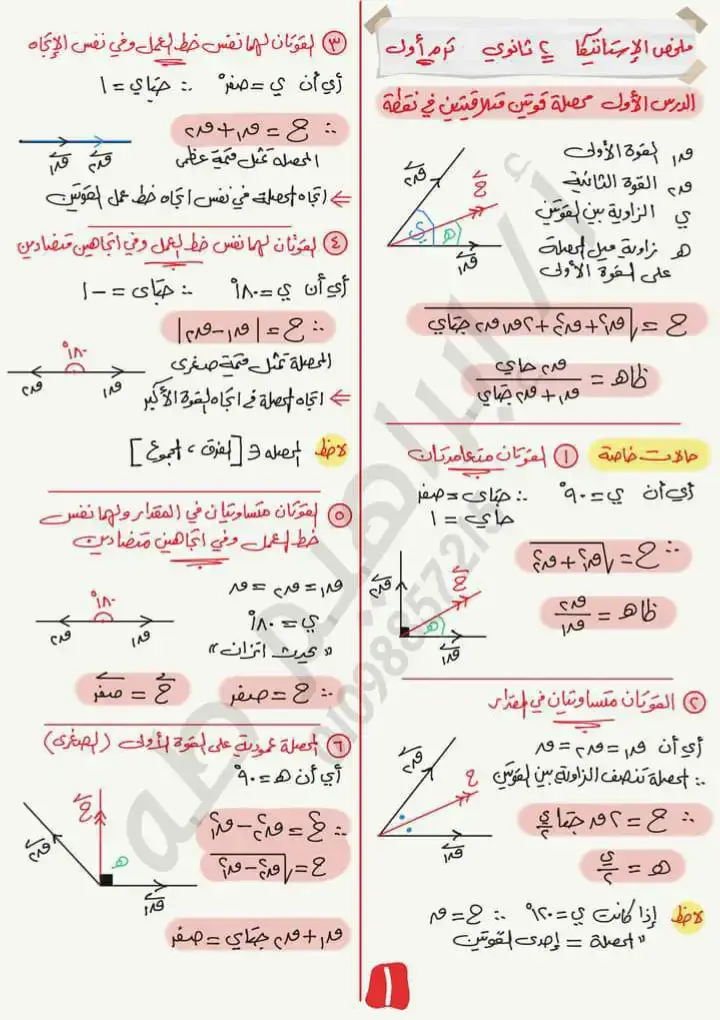 ملخص الإستاتيكا ٢ ثانوي ترم أول
الدرس الأول محصلة قوتين متلاقيتين في نقطة
ق١ القوة الأولى
ق٢ القوة الثانية
ي الزاوية بين القوتين
هـ زاوية ميل المحصلة
على القوة الأولى
ق٢
ح
ي
هـ
ق١
ح = √ق١² + ق٢² + ٢ق١ق٢ جتاي
ظاهـ = ق٢ حاي / ق١ + ق٢ جتاي
حالات خاصة ١ القوتان متعامدتان
أي أن ي = ٩٠° ∴ جتاي = صفر
حاي = ١
∴ ح = √ق١² + ق٢²
ظاهـ = ق٢ / ق١
ق٢
ح
هـ
ق١
٢ القوتان متساويتان في المقدار
أي أن ق١ = ق٢ = ق
∴ المحصلة تنصف الزاوية بين القوتين
∴ ح = ٢ق جتا ي/٢
هـ = ي/٢
ق٢
ح
ق١
لاحظ إذا كانت ي = ١٢٠° ∴ ح = ق
"المحصلة = إحدى القوتين
٣ القوتان لهما نفس خط العمل وفي نفس الإتجاه
أي أن ي = صفر° ∴ جتاي = ١
∴ ح = ق١ + ق٢
المحصلة تمثل قيمة عظمى
ق١ ق٢
⇐ اتجاه المحصلة في نفس اتجاه خط عمل القوتين
٤ القوتان لهما نفس خط العمل وفي اتجاهين متضادين
أي أن ي = ١٨٠° ∴ جتاى = -١
∴ ح = |ق١ - ق٢|
المحصلة تمثل قيمة صغرى
١٨٠°
ق٢ ق١
⇐ اتجاه المحصلة في اتجاه القوة الأكبر
لاحظ المحصله ∈ [الفرق ، المجموع]
٥ القوتان متساويتان في المقدار ولهما نفس
خط العمل وفي اتجاهين متضادين
ق١ = ق٢ = ق
ي = ١٨٠°
"بحيث اتزان"
١٨٠°
ق٢ ق١
∴ ح = صفر ح = صفر
٦ المحصلة عمودية على القوة الأولى (الصغرى)
أي أن هـ = ٩٠°
∴ ح² = ق٢² - ق١²
ح = √ق٢² - ق١²
ق٢
ح
هـ
ق١
ق١ + ق٢ جتاي = صفر
١